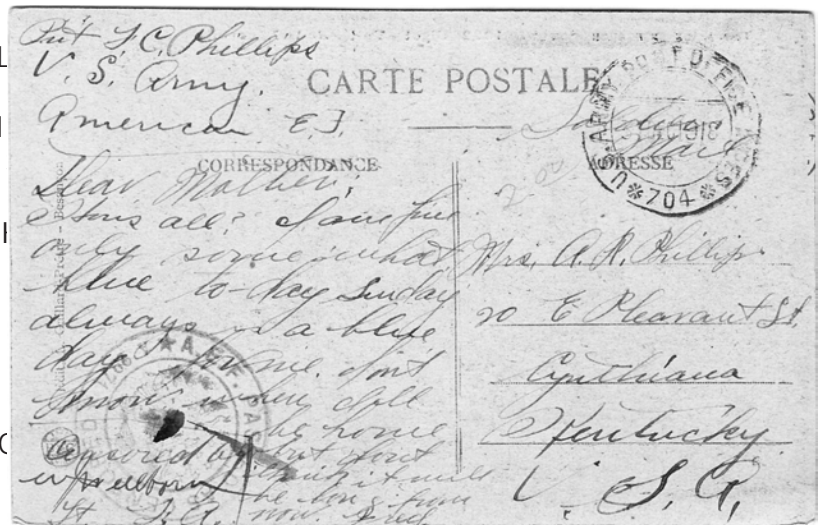 Pvt L. C. Phillips
U. S. Army.
American E. F.
CARTE POSTALE
Soldiers
Mail
CORRESPONDANCE
ADRESSE
U.S. ARMY POST OFFICE
* 704 *
Dear Mother,
Hows all? I am fine
only somewhat
blue to-day Sunday
always is a blue
day for me. don't
know when I'll
be home
but don't
think it will
be long from
now.
Censored by
Lt.
A.E.F.
Mrs. A. R. Phillips
20 E Pleasant St.
Cynthiana
Kentucky
U. S. A.